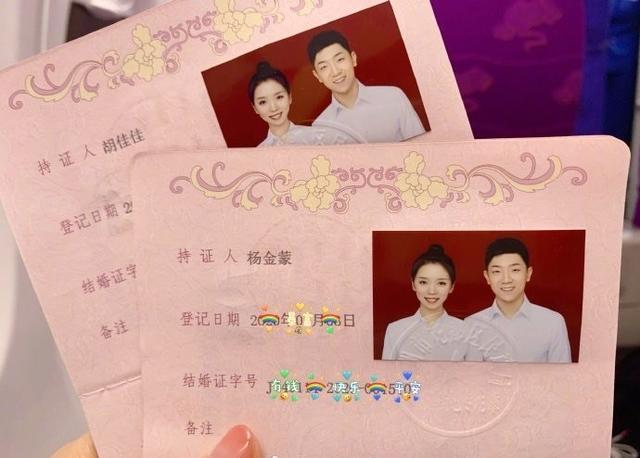 持证人 胡佳佳
登记日期 2
结婚证字
备注
持证人 杨金蒙
登记日期
结婚证字号
有钱 快乐 平安
备注